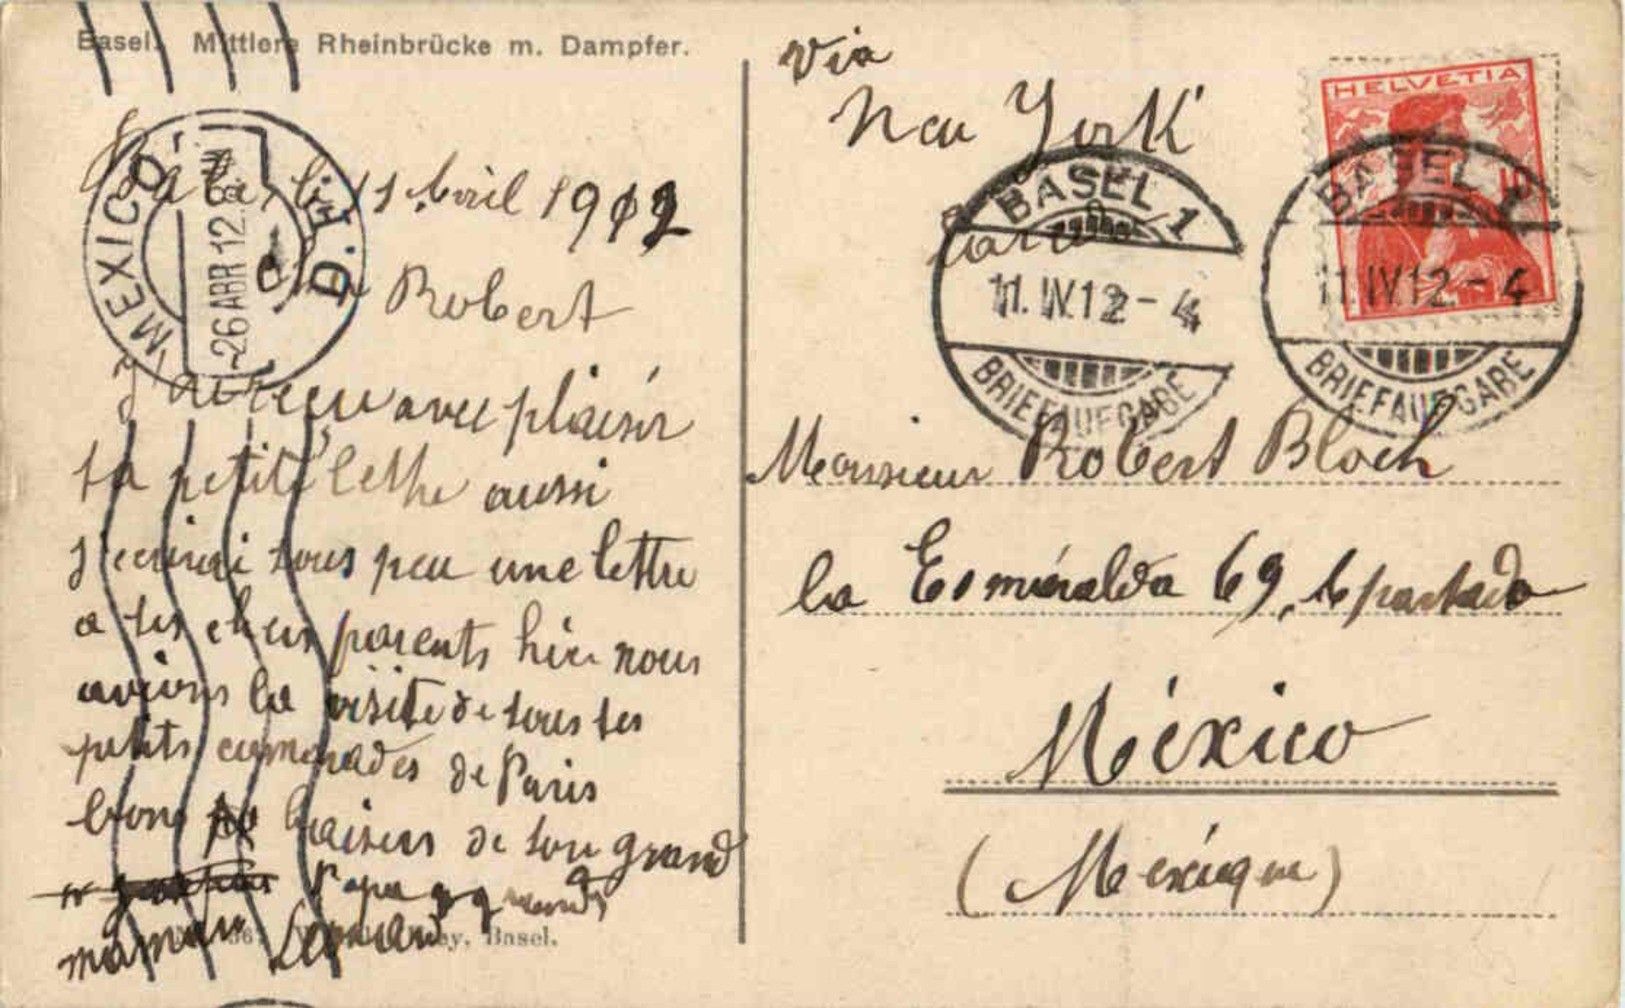 Basel. Mittlere Rheinbrücke m. Dampfer.
Via
New York
HELVETIA
BASEL 1
11.IV.12 - 4
BRIEFAUFGABE
BASEL 1
11.IV.12 - 4
BRIEFAUFGABE
MEXICO D.F.
26 ABR 12
Bale, li 11 Avril 1912
Robert
J'ai reçu avec plaisir
ta petite lettre aussi
j'ecrirai sous peu une lettre
a tes chers parents hier nous
avions la visite de tous tes
petits camarades de Paris
bons baisers de ton grand
Papa
maman Leonard
Basel.
Monsieur Robert Bloch
la Esméralda 69, Apartado
México
(Mexique)